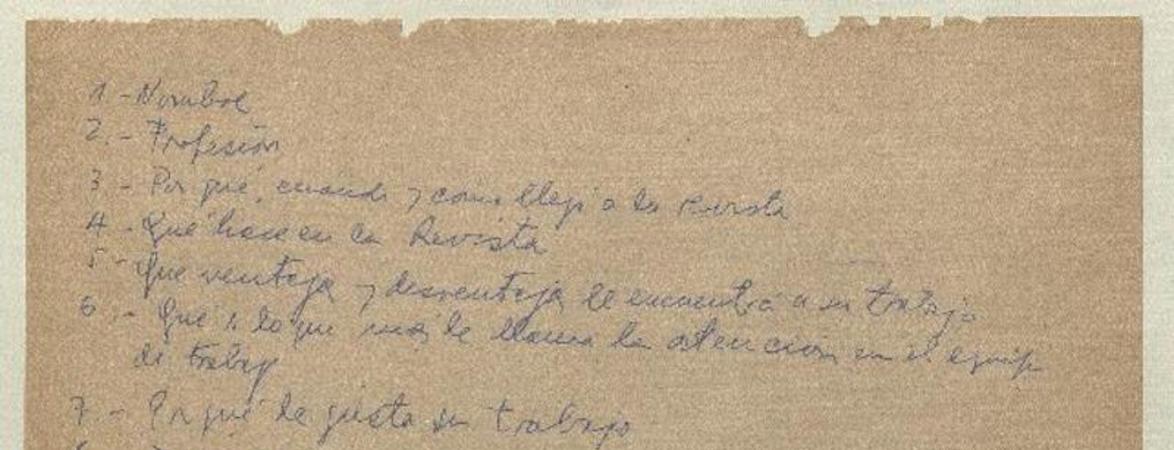 1.- Nombre
2.- Profesión
3.- Por qué, cuando y como llegó a la Revista
4.- Qué hace en la Revista
5.- Que ventaja y desventaja le encuentra a su trabajo
6.- Qué es lo que más le llama la atención en el equipo
de trabajo
7.- Por qué le gusta su trabajo